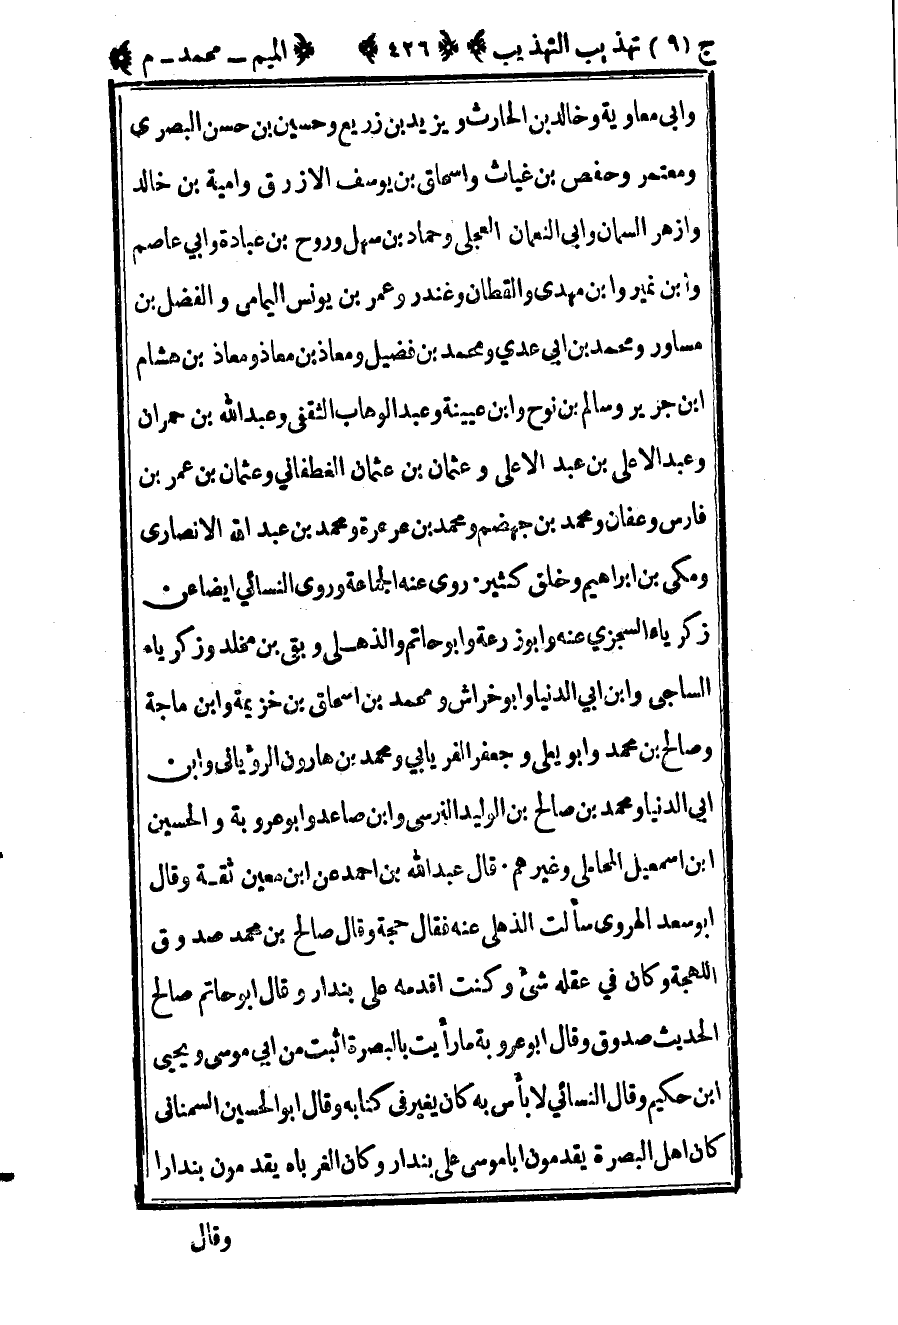 ج (٩) تهذيب التهذيب ﴿ ٤٢٦ ﴾ ﴿ الميم ــ محمد ــ م ﴾
وابى معاوية وخالد بن الحارث ويزيد بن زريع وحسين بن حسن البصرى
ومعتمر وحفص بن غياث واسحاق بن يوسف الازرق وامية بن خالد
وازهر السمان وابى النعمان العجلى وحماد بن سهل وروح بن عبادة وابي عاصم
وابن نمير وابن مهدى والقطان وغندر وعمر بن يونس اليمامى والفضل بن
مساور ومحمد بن ابي عدي ومحمد بن فضيل ومعاذ بن معاذ ومعاذ بن هشام
ابن جزير وسالم بن نوح وابن عيينة وعبد الوهاب الثقفى وعبد الله بن حمران
وعبد الاعلى بن عبد الاعلى وعثمان بن عثمان الغطفاني وعثمان بن عمر بن
فارس وعفان ومحمد بن جهضم ومحمد بن عرعرة ومحمد بن عبد الله الانصارى
ومكى بن ابراهيم وخلق كثير. روى عنه الجماعة وروى النسائي ايضا عن
زكرياء السجزي عنه وابو زرعة وابو حاتم والذهلى وبقى بن مخلد وزكرياء
الساجى وابن ابي الدنيا وابو خراش ومحمد بن اسحاق بن خزيمة وابن ماجة
وصالح بن محمد وابو يعلى وجعفر الفريابي ومحمد بن هارون الرؤيانى وابن
ابي الدنيا ومحمد بن صالح بن الوليد النرسى وابن صاعد وابو عروبة والحسين
ابن اسمعيل المحاملى وغيرهم. قال عبد الله بن احمد عن ابن معين ثقة وقال
ابو سعد الهروى سألت الذهلى عنه فقال حجة وقال صالح بن محمد صدوق
اللهجة وكان في عقله شئ وكنت اقدمه على بندار وقال ابو حاتم صالح
الحديث صدوق وقال ابو عروبة ما رأيت بالبصرة اثبت من ابي موسى ويحيى
ابن حكيم وقال النسائي لا بأس به كان يغير فى كتابه وقال ابو الحسين السمنانى
كان اهل البصرة يقدمون ابا موسى على بندار وكان الغرباء يقدمون بندارا
وقال